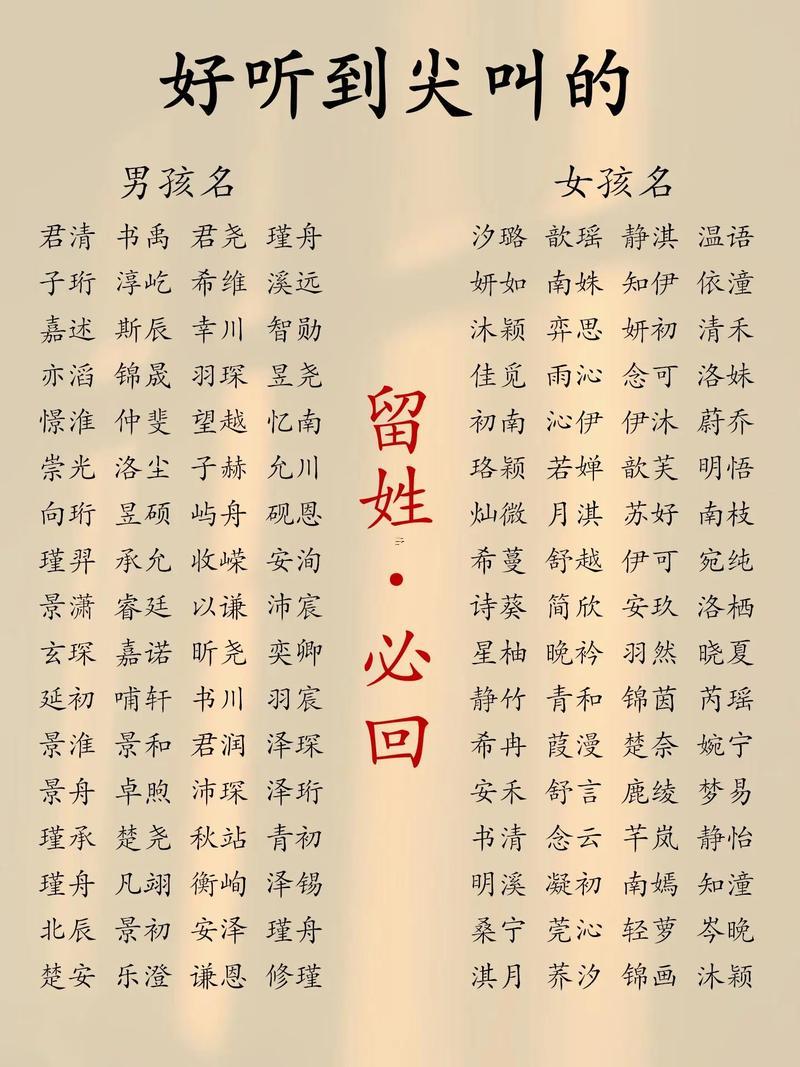 好听到尖叫的
男孩名
君清 书禹 君尧 瑾舟
子珩 淳屹 希维 溪远
嘉述 斯辰 幸川 智勋
亦滔 锦晟 羽琛 昱尧
憬淮 仲斐 望越 忆南
崇光 洛尘 子赫 允川
向珩 昱硕 屿舟 砚恩
瑾羿 承允 收嵘 安洵
景潇 睿廷 以谦 沛宸
玄琛 嘉诺 昕尧 奕卿
延初 哺轩 书川 羽宸
景淮 景和 君润 泽琛
景舟 卓煦 沛琛 泽珩
瑾承 楚尧 秋站 青初
瑾舟 凡翊 衡峋 泽锡
北辰 景初 安泽 瑾舟
楚安 乐澄 谦恩 修瑾
留姓·必回
女孩名
汐璐 歆瑶 静淇 温语
妍如 南姝 知伊 依潼
沐颖 弈思 妍初 清禾
佳觅 雨沁 念可 洛妹
初南 沁伊 伊沐 蔚乔
珞颖 若婵 歆芙 明悟
灿微 月淇 苏好 南枝
希蔓 舒越 伊可 宛纯
诗葵 简欣 安玖 洛栖
星柚 晚衿 羽然 晓夏
静竹 青和 锦茵 芮瑶
希冉 葭漫 楚奈 婉宁
安禾 舒言 鹿绫 梦易
书清 念云 芊岚 静怡
明溪 凝初 南嫣 知潼
桑宁 莞沁 轻萝 岑晚
淇月 荞汐 锦画 沐颖